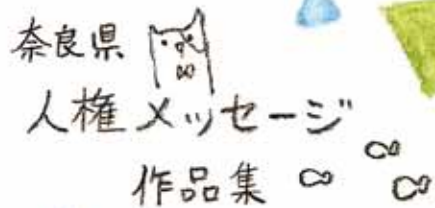 奈良県
人権メッセージ
作品集